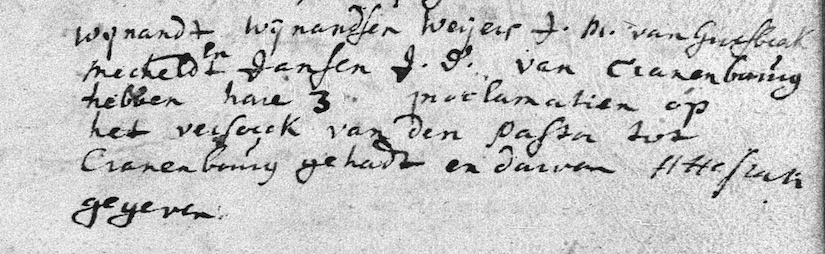 wijnandt wijnandsen weijers J. M. van Groesbeak
mecheldt en Jansen J. D. van Cranenbourg
hebben hare 3 proclamatien op
het versoeck van den Pastor tot
Cranenbourg gehadt en daarvan attestati
gegeven